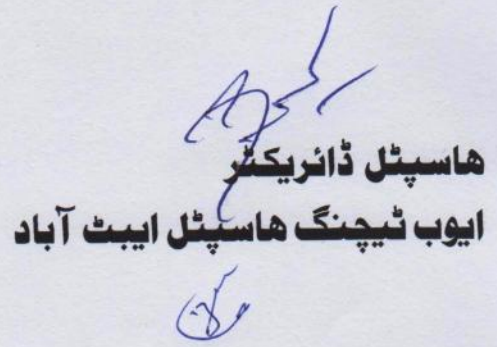 هاسپٹل ڈائریکٹر
ایوب ٹیچنگ هاسپٹل ایبٹ آباد